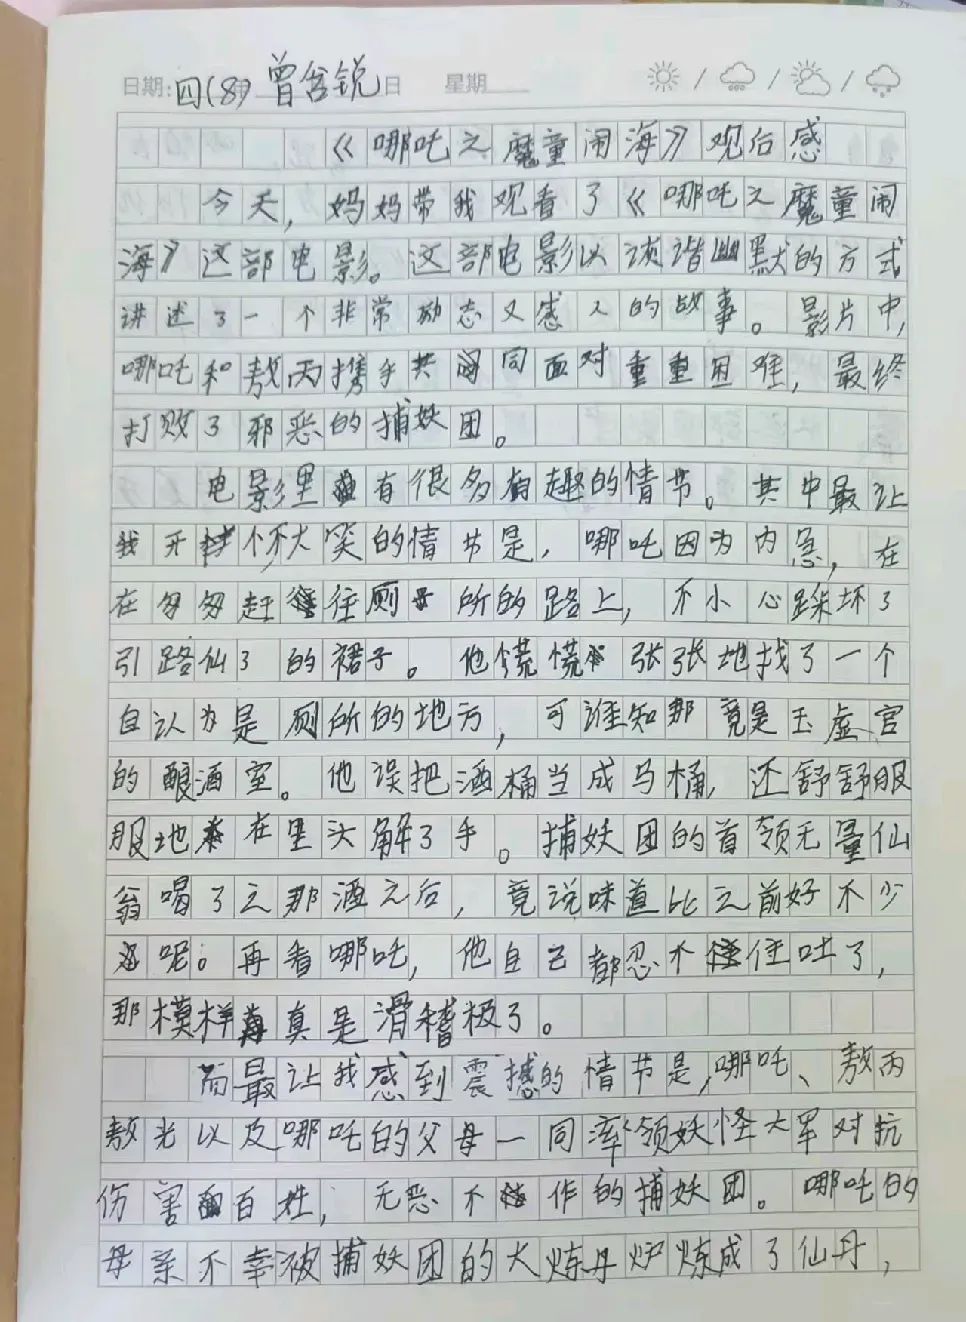 日期: 四(8) 曾含锐 日 星期
《哪吒之魔童闹海》观后感
今天，妈妈带我观看了《哪吒之魔童闹
海》这部电影。这部电影以诙谐幽默的方式
讲述了一个非常励志又感人的故事。影片中，
哪吒和敖丙携手共同面对重重困难，最终
打败了邪恶的捕妖团。
电影里有很多有趣的情节。其中最让
我开怀大笑的情节是，哪吒因为内急，在
在匆匆赶往厕所的路上，不小心踩坏了
引路仙子的裙子。他慌慌张张地找了一个
自认为是厕所的地方，可谁知那竟是玉虚宫
的酿酒室。他误把酒桶当成马桶，还舒舒服
服地在里头解了手。捕妖团的首领无量仙
翁喝了之那酒之后，竟说味道比之前好不少
呢。再看哪吒，他自己都忍不住吐了，
那模样真是滑稽极了。
而最让我感到震撼的情节是，哪吒、敖丙
敖光以及哪吒的父母一同率领妖怪大军对抗
伤害百姓，无恶不作的捕妖团。哪吒的
母亲不幸被捕妖团的大炼丹炉炼成了仙丹，